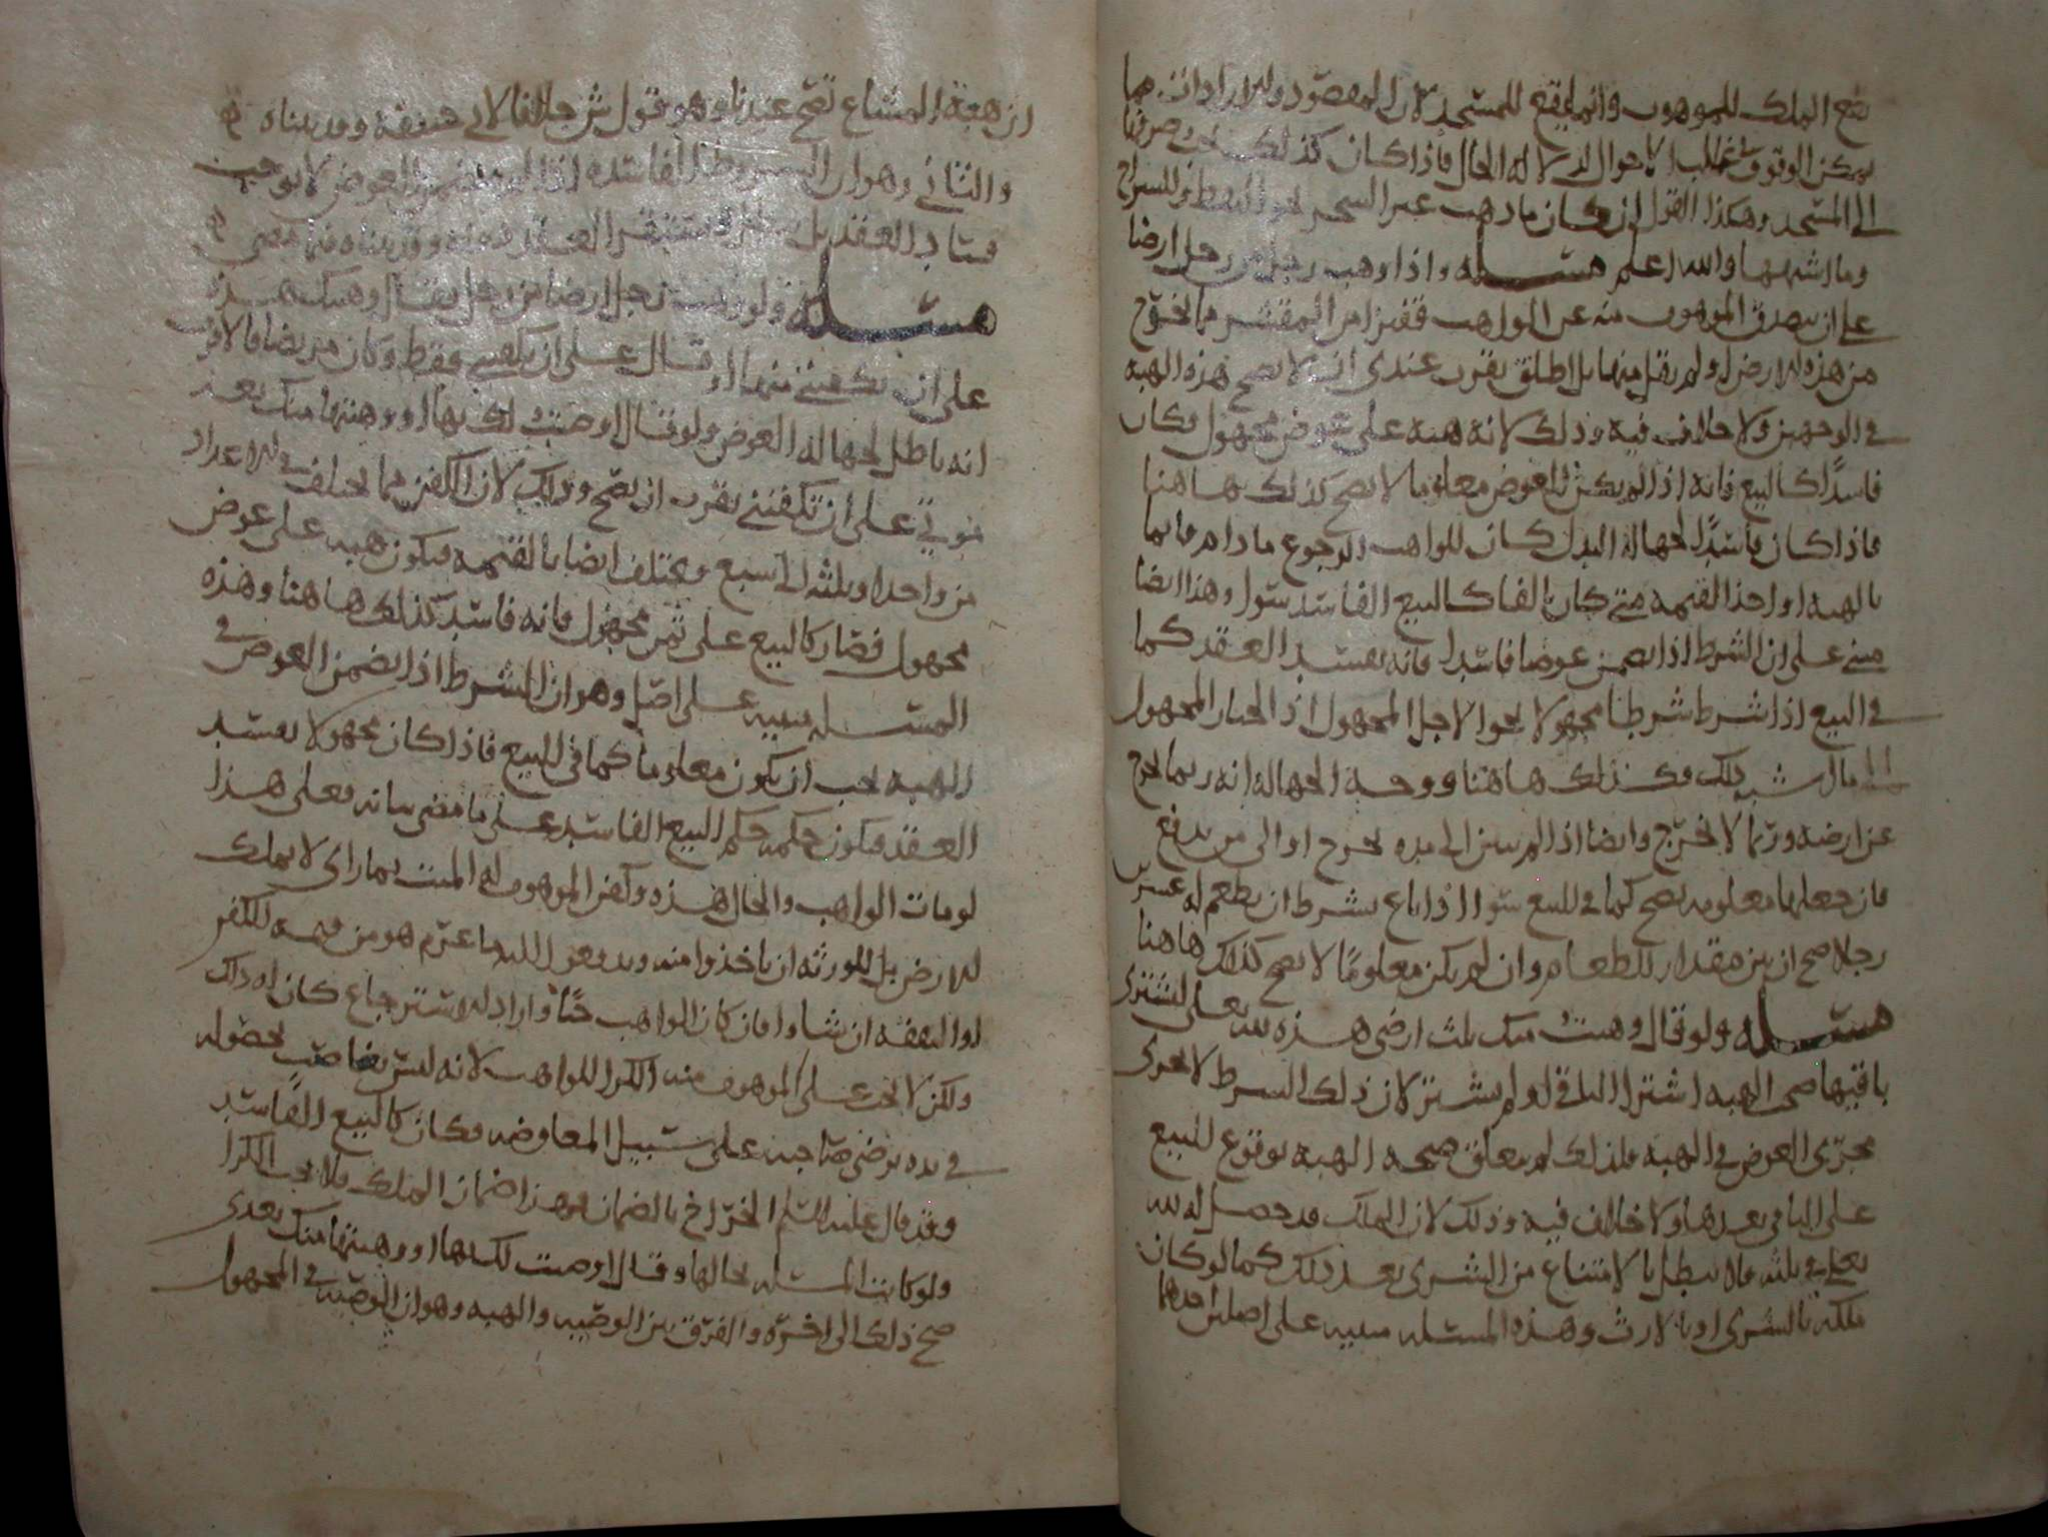 يقع الملك للموهوب وانما يقع للمسجد لان المقصود والارادات مما
يمكن الوقوف في غالب الاحوال لدلالة الحال فاذا كان كذلك صرفنا
الى المسجد وهكذا القول ان كان ما وهب عين السجر نحو والسراج
وما اشبهها والله اعلم مسئلة واذا وهب رجل من رجل ارضا
على ان يصدق الموهوب منه عن الواهب قفيزا من المقشر مما يخرج
من هذه الارض او لم يقل منها بل اطلق يقرب عندي انه لا يصح هذه الهبة
في الوجهين ولا خلاف فيه وذلك لانه هبة على عوض مجهول فكان
فاسدًا كالبيع فانه اذا لم يكن العوض معلوما لا يصح كذلك هاهنا
فاذا كان فاسدًا لجهالة البدل كان للواهب الرجوع ما دام قائما
بالهبة او اخذ القيمة متى كان تالفا كالبيع الفاسد سوا وهذا ايضا
مبني على ان الشرط اذا تضمن عوضا فاسدا فانه يفسد العقد كما
في البيع اذا شرط شرطا مجهولا نحو الاجل المجهول او الخيار المجهول
فكذلك هاهنا ووجه الجهالة انه ربما يخرج
عن ارضه وربما لا يخرج وايضا اذا لم يبين الى مده يخرج او الى من يدفع
فان جعلها معلومه يصح كما في البيع سوا اذا باع بشرط ان يطعم له عشرين
رجلا صح ان بين مقدار الطعام وان لم يكن معلومًا لا يصح كذلك هاهنا
مسئلة ولو قال وهبت منك ثلث ارضي هذه لله تعالى لتشتري
باقيها صح الهبه اشترا الباقي او لم يشتر لان ذلك الشرط لا يجري
مجرى العوض في الهبة فلذلك لم يتعلق صحة الهبة بوقوع البيع
على الباقي بعدها ولا خلاف فيه وذلك لان الملك قد حصل له لله
تعالى في ثلثه فلا يبطل بالامتناع من الشرى بعد ذلك كما لو كان
ملكه بالشرى او بالارث وهذه المسئلة مبنيه على اصلين احدهما
ان هبة المشاع تصح عندنا وهو قول ش خلافا لابي حنيفة وقد بيناه
والثاني وهو ان الشروط الفاسده اذا لم تتضمن العوض لا يوجب
فساد العقد بل العقد وقد بيناه فيما مضى
مسئلة ولو وهب رجل ارضا من رجل فقال وهبتك هذه
على ان تكفنني منها او قال على ان تكفني فقط وكان مريضا فالاقرب
انه باطل لجهالة العوض ولو قال اوصيت لك بها او وهبتها منك بعد
موتي على ان تكفنني يقرب ان يصح وذلك لان الكفن مما يختلف في الاعداد
من واحد او ثلثه الى سبع ويختلف ايضا بالقيمه فيكون هبه على عوض
مجهول فصار كالبيع على ثمن مجهول فانه فاسد كذلك هاهنا وهذه
المسئلة مبنيه على اصل وهو ان الشرط اذا تضمن العوض في
الهبة يجب ان يكون معلوما كما في البيع فاذا كان مجهولا يفسد
العقد فيكون حكمه حكم البيع الفاسد على ما مضى بيانه فعلى هذا
لو مات الواهب والحال هذه وكفن الموهوب له الميت بما راى لا يملك
الارض بل للورثه ان ياخذوا منه ويدفعوا اليه ما غرم هو من قيمة الكفن
او النفقه ان شاوا فان كان الواهب حيًا واراد الاسترجاع كان له ذلك
ولكن لا يجب على الموهوب منه الكرا للواهب لانه ليس بغاصب بحصوله
في يده برضى صاحبه على سبيل المعاوضه فكان كالبيع الفاسد
وقد قال عليه السلم الخراج بالضمان فهذا ضمان الملك فلا يجب الكرا
ولو كانت المسئلة بحالها وقال اوصيت لك بها او وهبتها منك بعدي
صح ذلك الى اخره والفرق بين الوصيه والهبه وهو ان الوصيه في المجهول